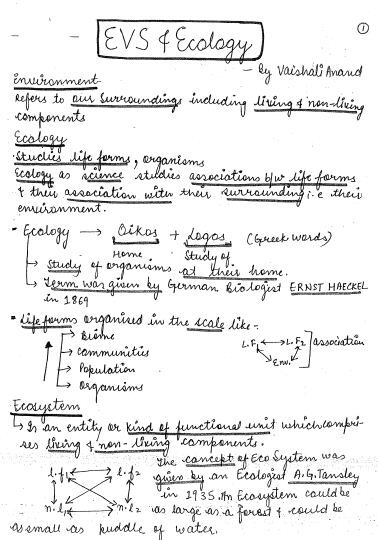 ①
EVS & Ecology
- By Vaishali Anand
Environment
Refers to our surroundings including living & non-living
components
Ecology
Studies life forms, organisms
Ecology as science studies associations b/w life forms
& their association with their surrounding i.e their
environment.
Ecology → Oikos + Logos (Greek words)
Home Study of
Study of organisms at their home.
Term was given by German Biologist ERNST HAECKEL
in 1869
Life forms organised in the scale like -
Biome
Communities
Population
Organisms
L.F1 ↔ L.F2
Env.
association
Ecosystem
Is an entity or kind of functional unit which compri-
ses living & non-living components.
l.f1 l.f2
n.l1 n.l2
The concept of EcoSystem was
given by an Ecologist A.G. Tansley
in 1935. An Ecosystem could be
as large as a forest & could be
as small as puddle of water.